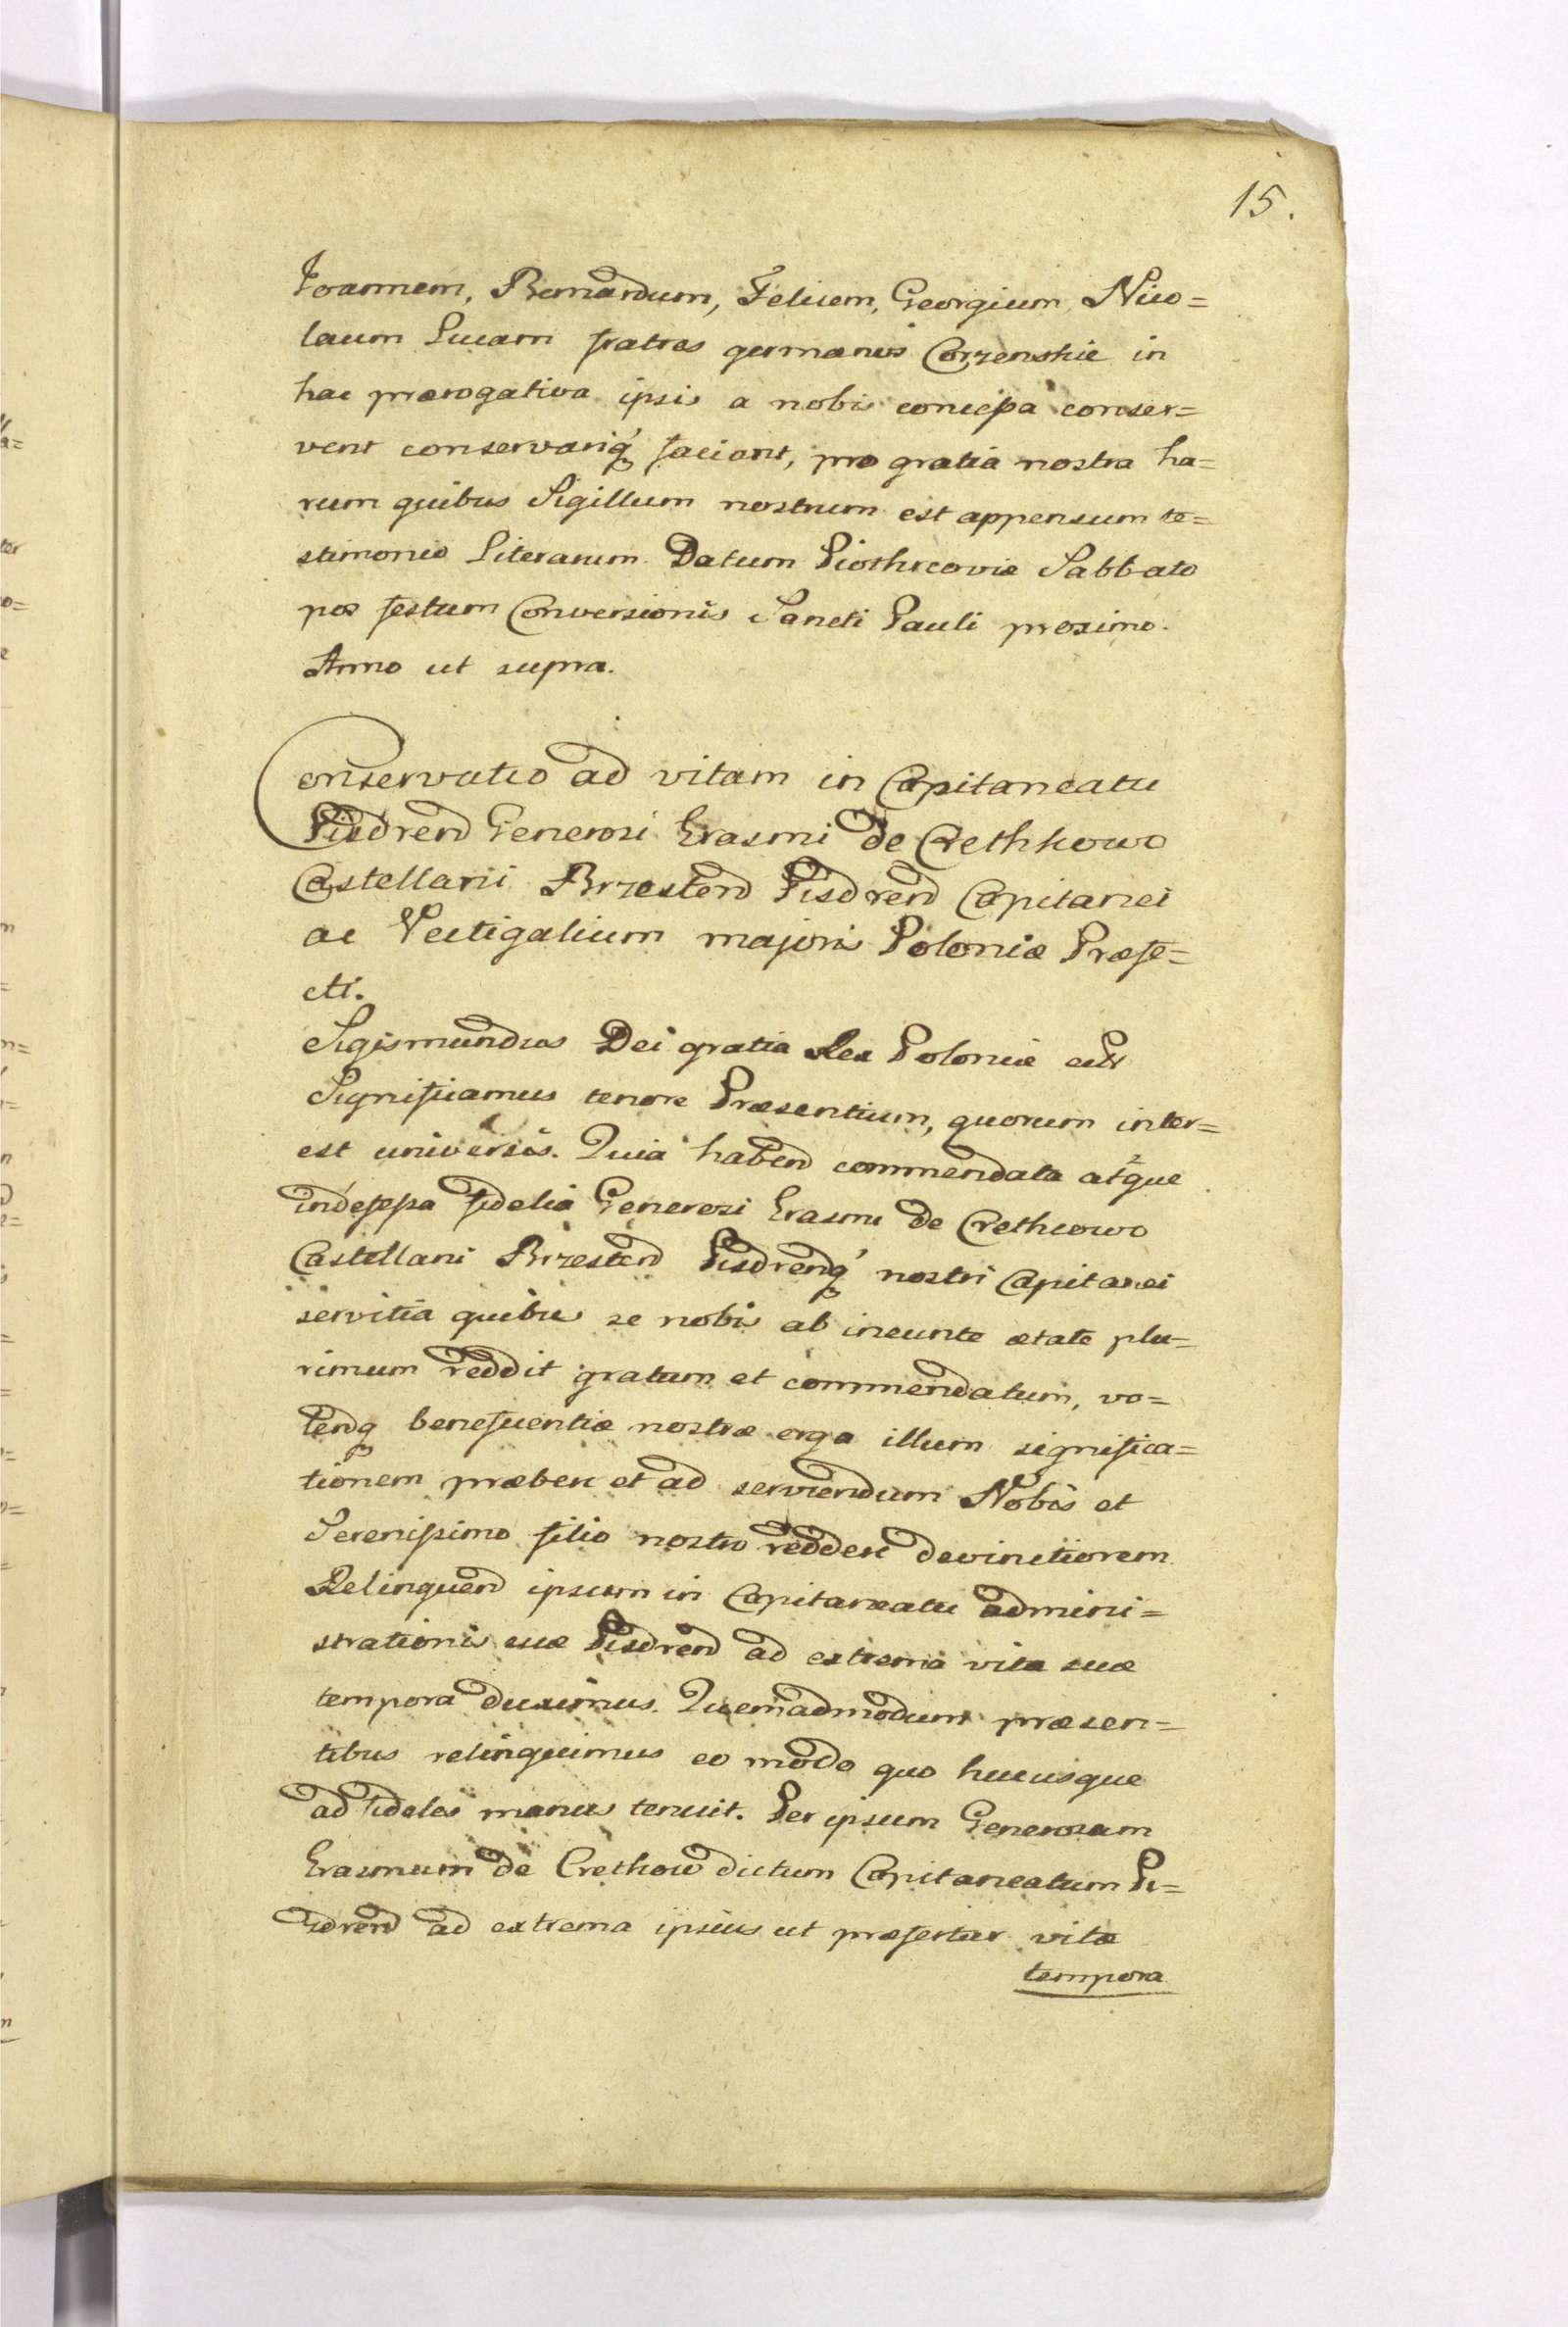 15.
Joannem, Bernardum, Felicem, Georgium, Nico=
laum Lucam fratres germanos Corzenskie in
hac prærogativa ipsis a nobis concessa conser=
vent conservariq́ faciant, pro gratia nostra ha=
rum quibus Sigillum nostrum est appensum te=
stimonio Literarum. Datum Piothrcoviæ Sabbato
pos festum Conversionis Sancti Pauli proximo.
Anno ut supra.
Conservatio ad vitam in Capitaneatu
Pisdren Generosi Erasmi de Crethkowo
Castellani Brzesten Pisdren Capitanei
ac Vectigalium majoris Poloniæ Præfe=
cti.
Sigismundus Dei gratia Rex Poloniæ etc
Significamus tenore Præsentium, quorum inter=
est universis. Quia haben commendata atque
indefessa fidelia Generosi Erasmi de Crethcowo
Castellani Brzesten Pisdrenq́ nostri Capitanei
servitia quibus se nobis ab ineunte ætate plu=
rimum reddit gratum et commendatum, vo=
lenq beneficentiæ nostræ erga illum significa=
tionem præbere et ad serviendum Nobis et
Serenissimo filio nostro reddere devinctiorem
Relinquen ipsum in Capitaneatu admini=
strationis suæ Pisdren ad extrema vitæ suæ
tempora duximus. Quemadmodum præsen=
tibus relinquimus eo modo quo hucusque
ad fideles manus tenuit. Per ipsum Generosum
Erasmum de Crethow dictum Capitaneatum Pi=
sdren ad extrema ipsius ut præfertur vitæ
tempora